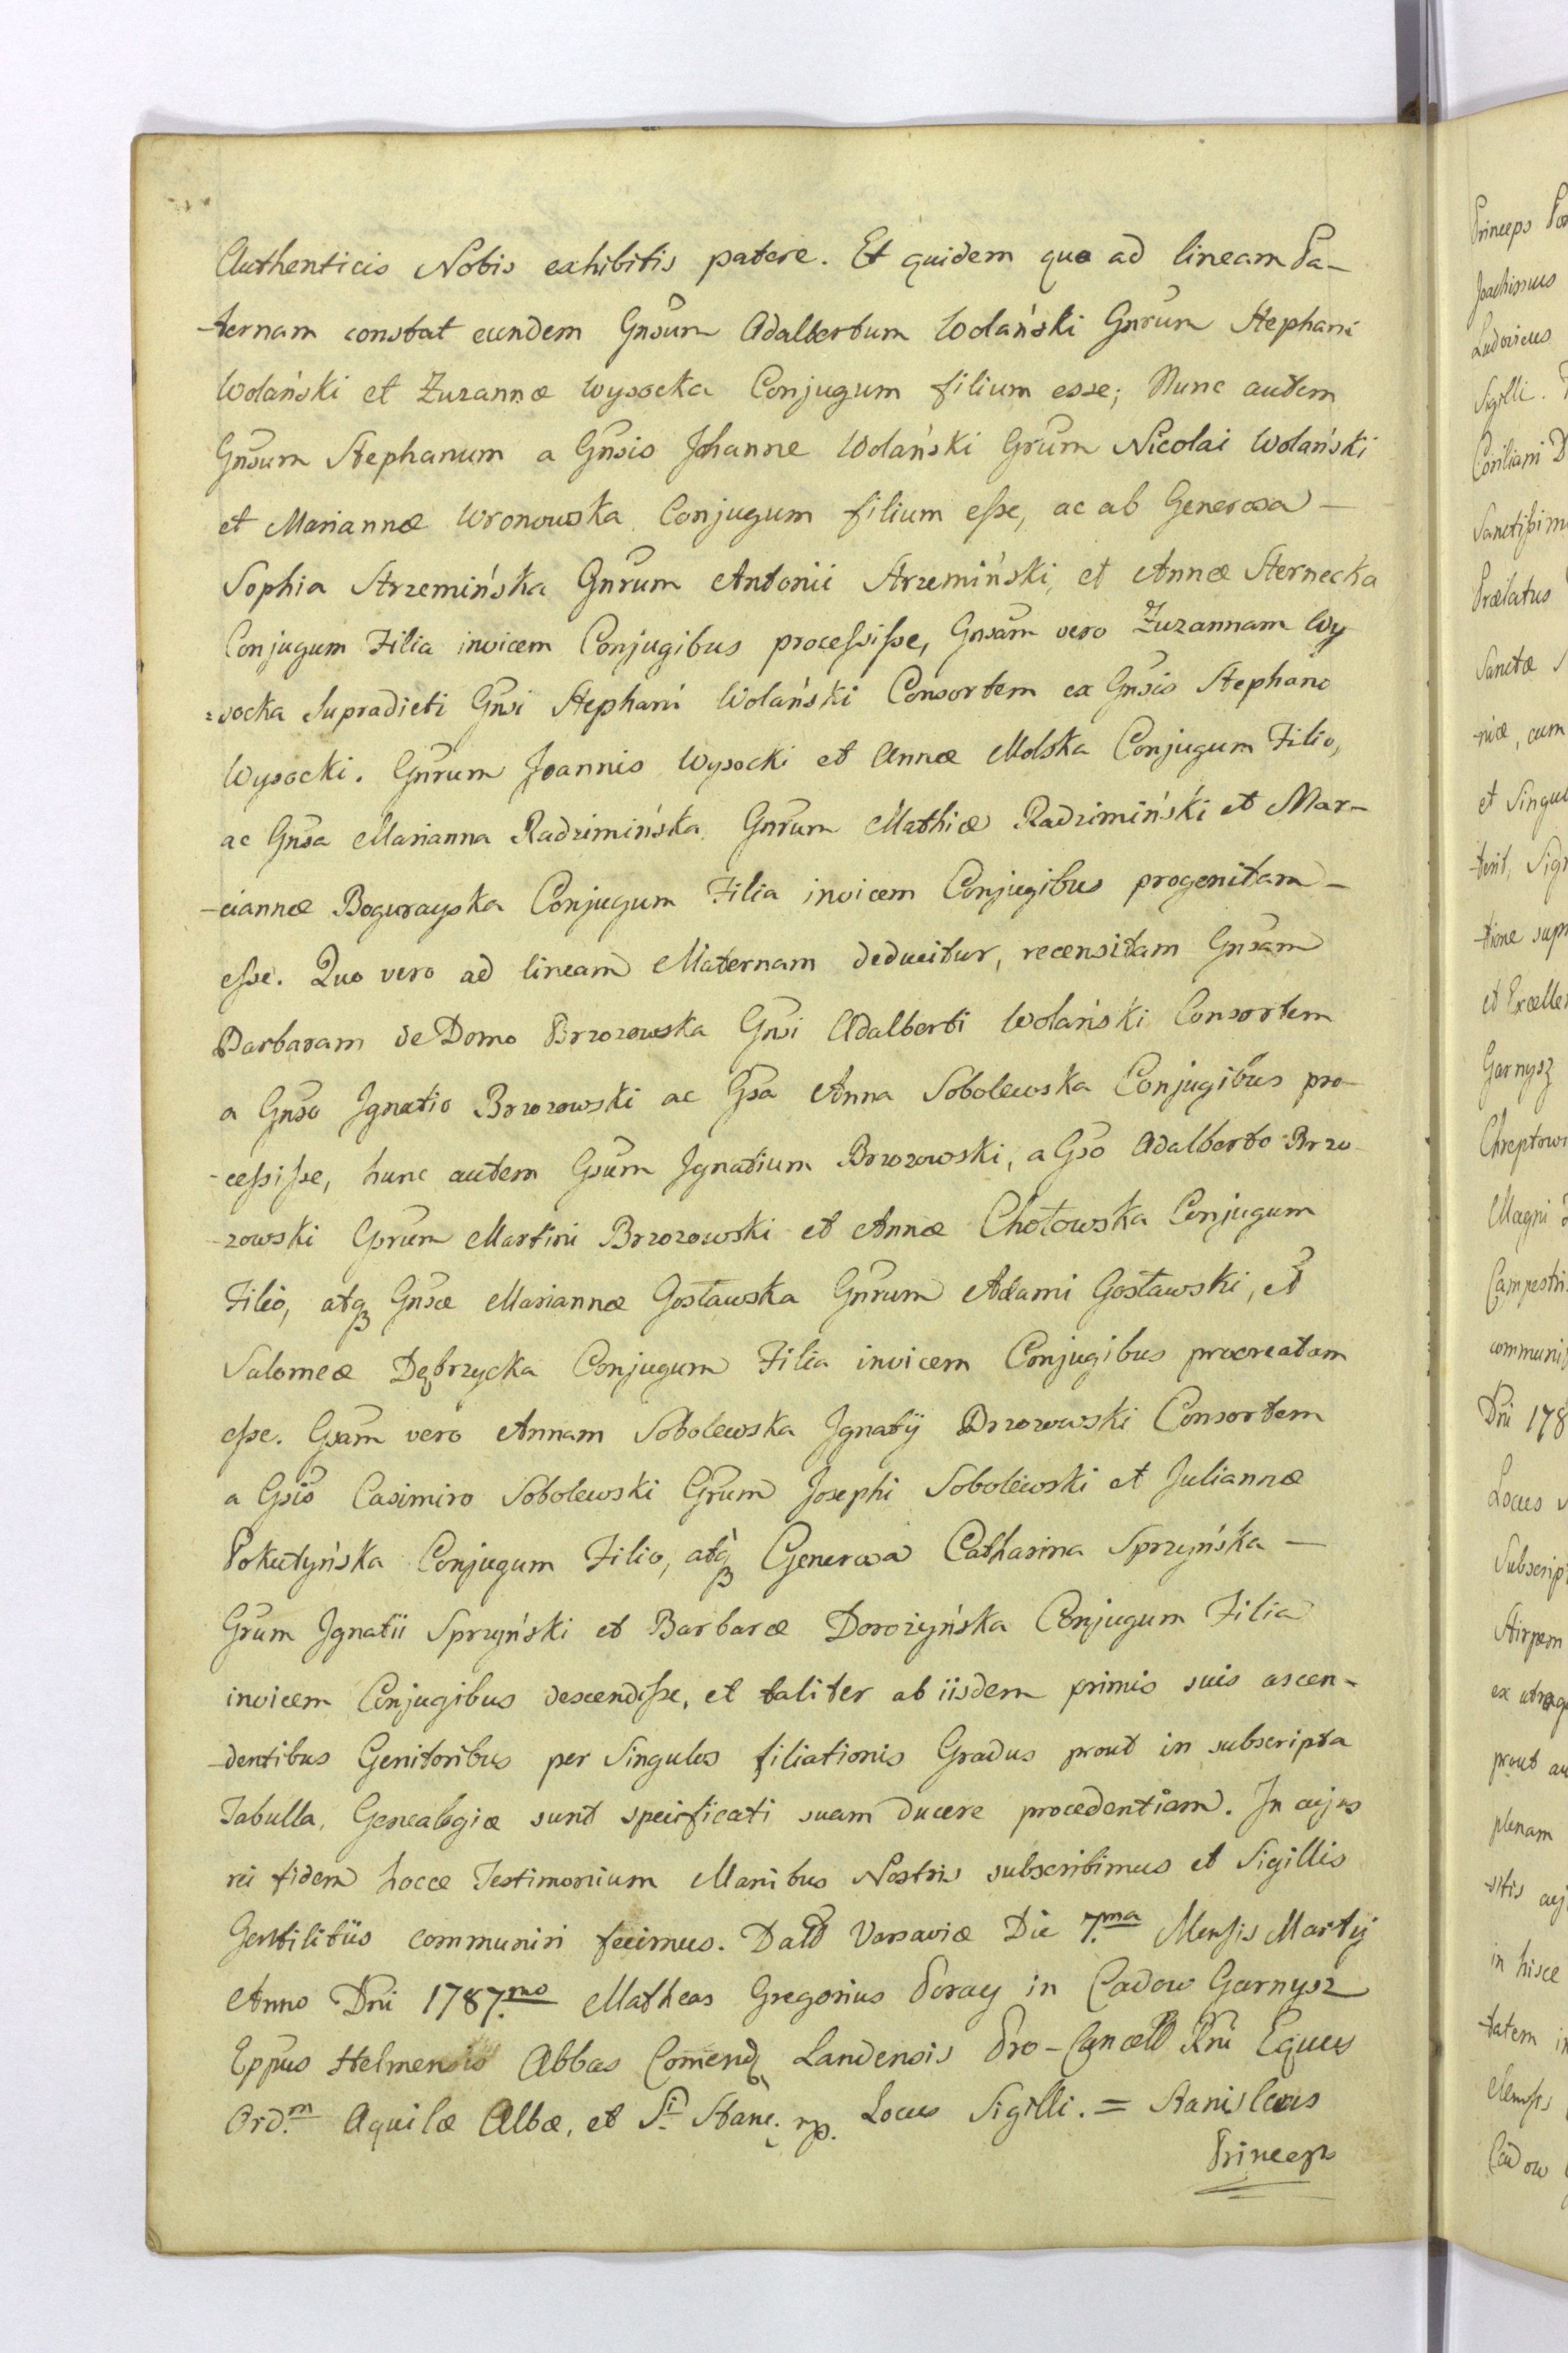 Authenticis Nobis exhibitis patere. Et quidem quo ad lineam Pa-
-ternam constat eundem Gnsum Adalbertum Wolański Gnrum Stephani
Wolański et Zuzannæ Wysocka Conjugum filium esse; Nunc autem
Gnsum Stephanum a Gnsis Johanne Wolański Grum Nicolai Wolański
et Mariannæ Wronowska Conjugum filium eſse, ac ab Generosa —
Sophia Strzemińska Gnrum Antonii Strzemiński, et Annæ Sternecka
Conjugum Filia invicem Conjugibus proceſsiſse, Gnsam vero Zuzannam Wy
=socka Supradicti Gnsi Stephani Wolański Consortem ex Gnsis Stephano
Wysocki. Gnrum Joannis Wysocki et Annæ Molska Conjugum Filio,
ac Gnsa Marianna Radzimińska Gnrum Mathiæ Radzimiński et Mar-
-ciannæ Bogurayska Conjugum Filia invicem Conjugibus progenitam —
eſse. Quo vero ad lineam Maternam deducitur, recensitam Gnsam
Barbaram de Domo Brzozowska Gnsi Adalberti Wolański Consortem
a Gnso Ignatio Brzozowski ac Gsa Anna Sobolewska Conjugibus pro-
-ceſsiſse, hunc autem Gsum Ignatium Brzozowski, a Gso Adalberto Brzo-
-zowski Grum Martini Brzozowski et Annæ Chołowska Conjugum
Filio, atq Gnsæ Mariannæ Gosławska Gnrum Adami Gosławski, et
Salomeæ Dębrzycka Conjugum Filia invicem Conjugibus procreatam
eſse. Gsam vero Annam Sobolewska Ignatij Brzozowski Consortem
a Gsis Casimiro Sobolewski Grum Josephi Sobolewski et Juliannæ
Pokutyńska Conjugum Filio, atq Generosa Catharina Sprzyńska —
Grum Ignatii Sprzyński et Barbaræ Dorożyńska Conjugum Filia
invicem Conjugibus descendiſse, et taliter ab iisdem primis suis ascen-
-dentibus Genitoribus per Singulos filiationis Gradus prout in subscripta
Tabulla, Genealogiæ sunt specificati suam ducere procedentiam. In cujus
rei fidem hocce Testimonium Manibus Nostris subscribimus et Sigillis
Gentilitiis communiri fecimus. Datt Varsaviæ Die 7.ma Menſis Martij
Anno Dni 1787.mo Matheas Gregorius Poray in Cadow Garnysz
Eppus Helmensis Abbas Comend. Landensis Pro-Cancell Rni Eques
Ord.m Aquilæ Albæ, et Si Stanc. mp. Locus Sigilli. = Stanislaus
Princeps